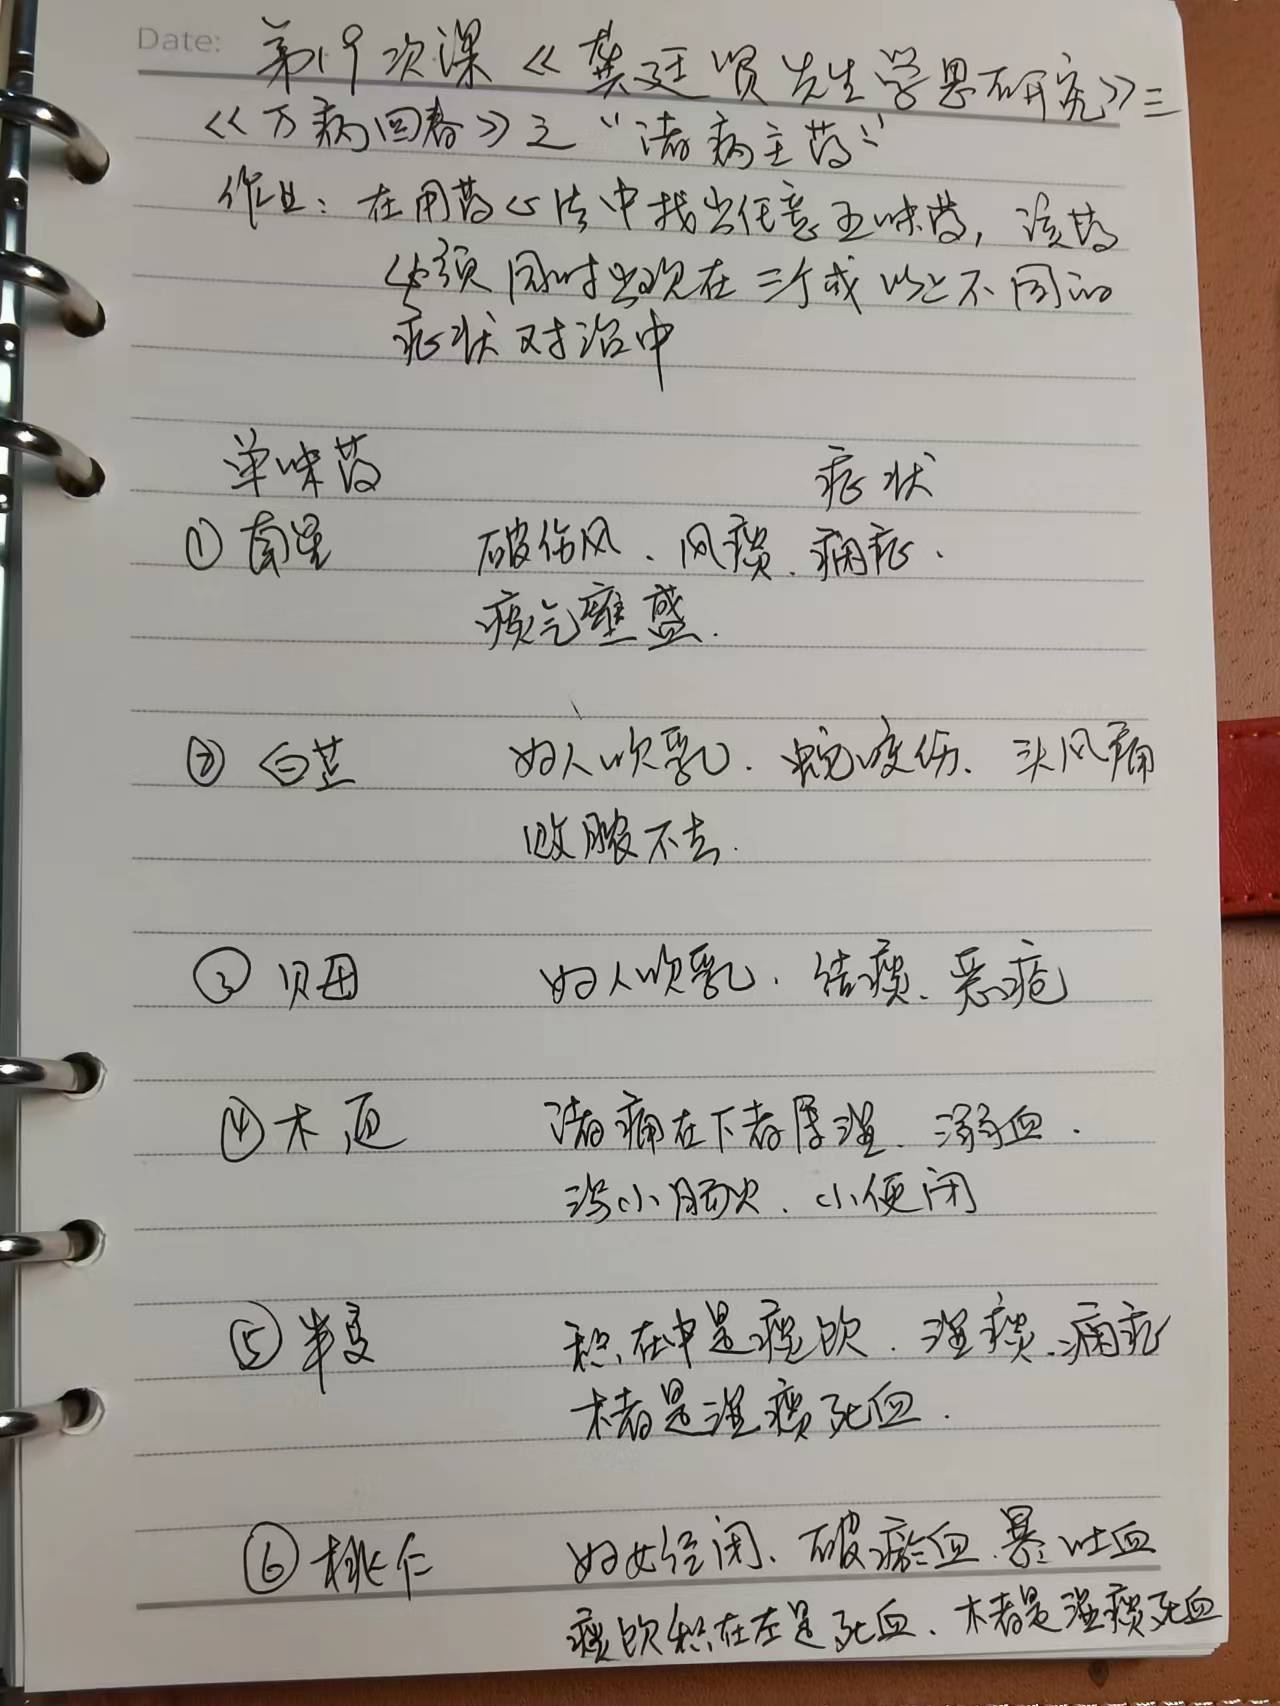 Date: 第19次课《龚廷贤先生学思研究》三
《万病回春》之“诸病主药”
作业：在用药心法中找出任意五味药，该药
必须同时出现在三个或以上不同的
症状对治中
单味药 症状
① 南星 破伤风、风痰、痫症、
痰气壅盛.
② 白芷 妇人吹乳、蛇咬伤、头风痛
败脓不去.
③ 贝母 妇人吹乳、结痰、恶疮
④ 木通 诸痛在下者属湿、溺血、
泻小肠火、小便闭
⑤ 半夏 积在中是痰饮、湿痰、痫症
木者是湿痰死血.
⑥ 桃仁 妇女经闭、破瘀血、暴吐血
痰饮积在左是死血、木者是湿痰死血